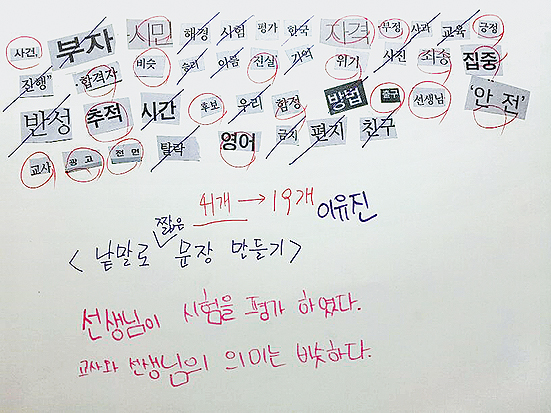 사건, 부자 시민 해결 시험 평가 한국 자격 부정 사과 교육 긍정
진행" 합격자 비슷 승리 아픔 진실 기억 위기 사진 죄송 집중
반성 추적 시간 후보 우리 함정 방법 출구 선생님 '안 전'
교사 광고 전면 탈락 영어 금지 편지 친구
41개 → 19개 이유진
짧은
< 낱말로 문장 만들기 >
선생님이 시험을 평가 하였다.
교사와 선생님의 의미는 비슷하다.